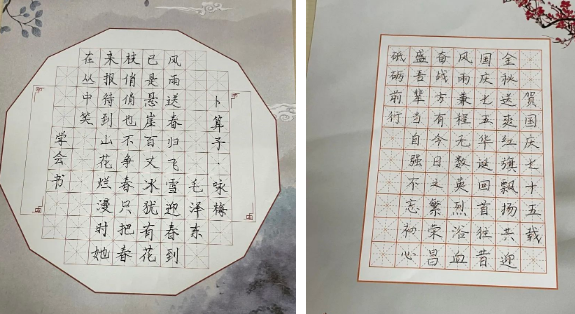 卜算子·咏梅
毛泽东
风雨送春归飞雪迎春到
已是悬崖百丈冰犹有花
枝俏俏也不争春只把春
来报待到山花烂漫时她
在丛中笑
学会书
贺国庆七十五载
金秋送爽红旗飘扬共迎
国庆七五华诞回首往昔
风雨兼程无数英烈浴血
奋战方有今日之繁荣昌
盛吾辈当自强不忘初心
砥砺前行